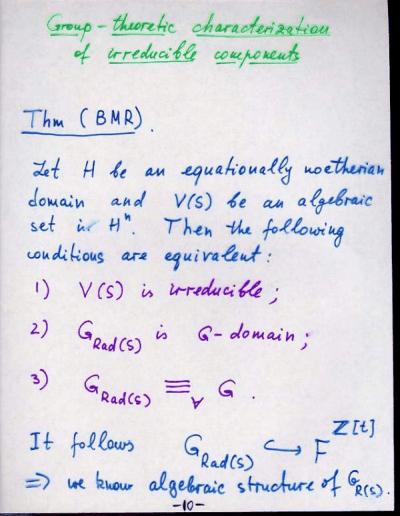 Group-theoretic characterization
of irreducible components
Thm (BMR).
Let H be an equationally noetherian
domain and V(S) be an algebraic
set in Hⁿ. Then the following
conditions are equivalent:
1) V(S) is irreducible;
2) G_Rad(S) is G-domain;
3) G_Rad(S) ≡_∀ G.
It follows G_Rad(S) ↪ F^Z[t]
=> we know algebraic structure of G_R(S).
-10-